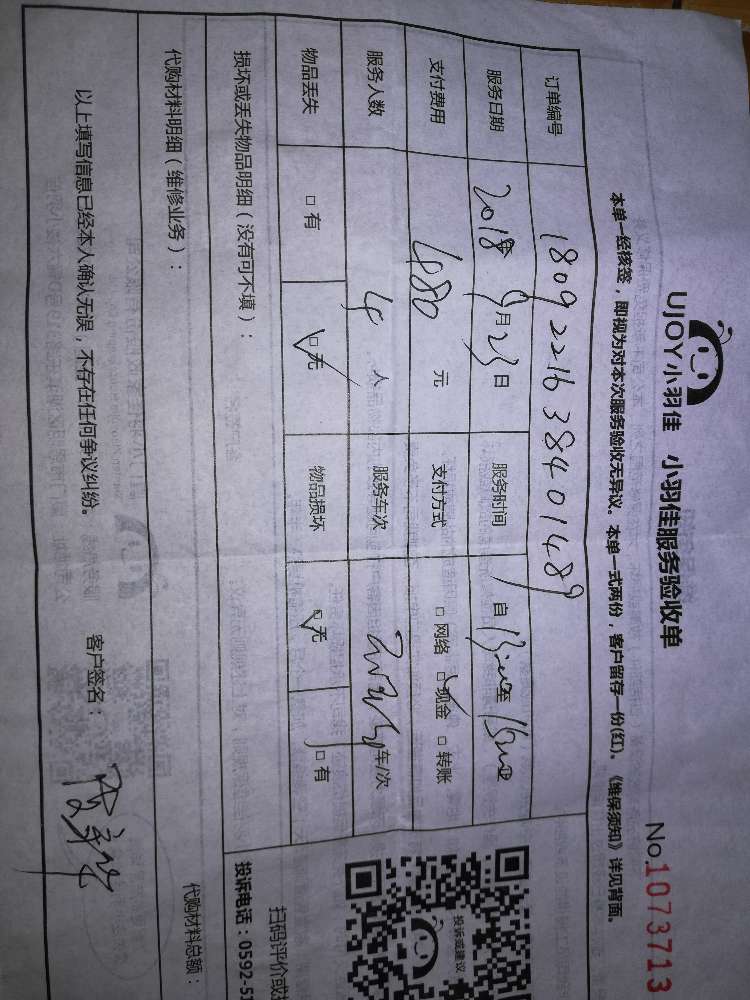 UJOY小羽佳 小羽佳服务验收单
No.1073713
本单一经核签，即视为对本次服务验收无异议。本单一式两份，客户留存一份(红)。《维保须知》详见背面。
订单编号 1809221638401489
服务日期 2018年9月23日 服务时间 自 至
支付费用 480 元 支付方式 □网络 □现金 □转账
服务人数 4 人 服务车次 车/次
物品丢失 □有 □无 物品损坏 □无 □有
损坏或丢失物品明细（没有可不填）：
投诉或建议
扫码评价或
投诉电话：0592-5
代购材料明细（维修业务）：
代购材料总额：
以上填写信息已经本人确认无误，不存在任何争议纠纷。 客户签名：